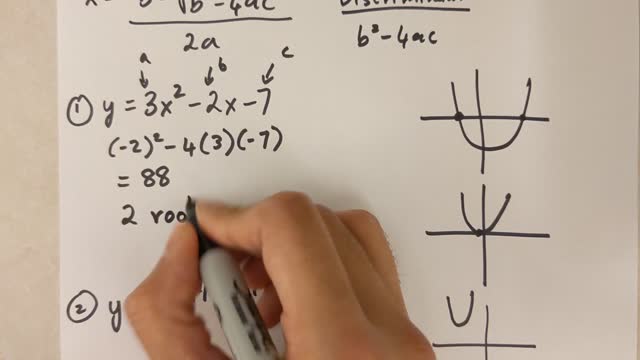 2a
b² - 4ac
a b c
① y = 3x² - 2x - 7
(-2)² - 4(3)(-7)
= 88
2 roo
② y